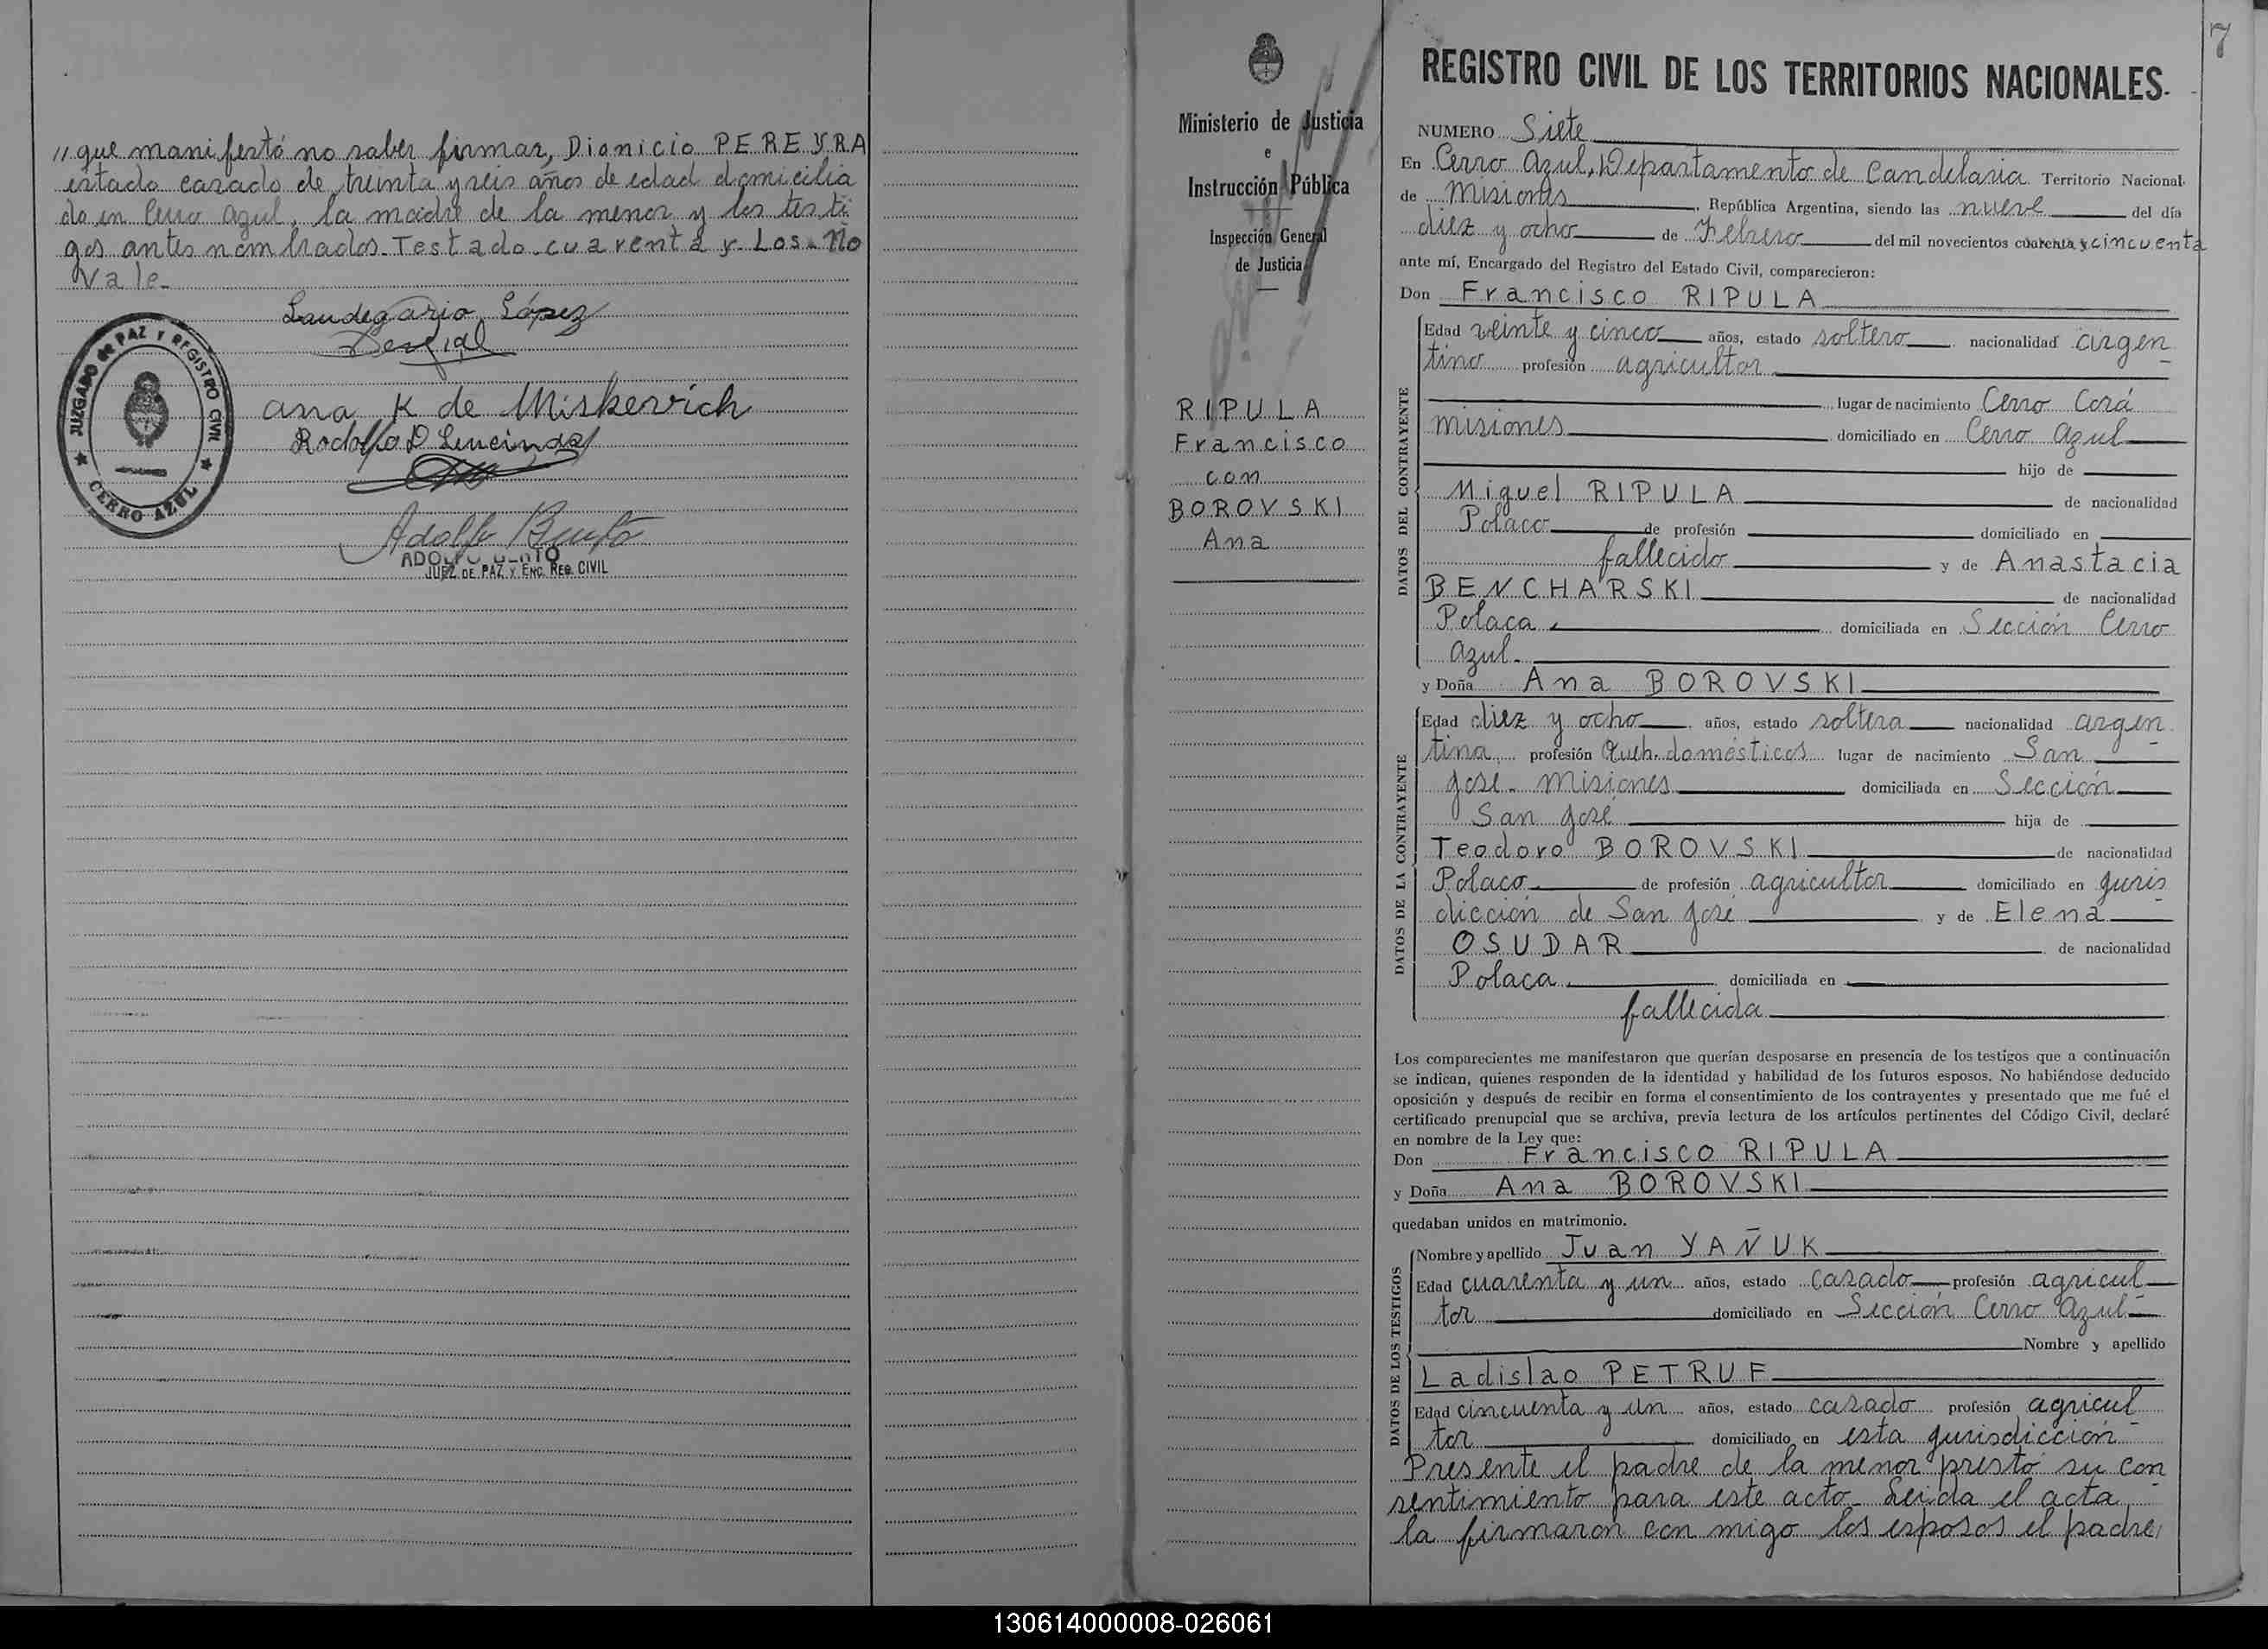 // que manifestó no saber firmar, Dionicio PEREYRA
estado casado de treinta y seis años de edad domicilia
do en Cerro Azul, la madre de la menor y los testi
gos antes nombrados. Testado cuarenta y Los - No
Vale.
Laudegario López
Ana K de Miskevich
Adolfo Bento
JUEZ DE PAZ Y ENC. REG. CIVIL
JUZGADO de PAZ Y REGISTRO CIVIL
CERRO AZUL
Ministerio de Justicia
e
Instrucción Pública
Inspección General
de Justicia
RIPULA
Francisco
con
BOROVSKI
Ana
7
REGISTRO CIVIL DE LOS TERRITORIOS NACIONALES.
NUMERO Siete
En Cerro Azul, Departamento de Candelaria Territorio Nacional
de Misiones, República Argentina, siendo las nueve del día
diez y ocho de Febrero del mil novecientos cuarenta y cincuenta
ante mí, Encargado del Registro del Estado Civil, comparecieron:
Don Francisco RIPULA
DATOS DEL CONTRAYENTE
Edad veinte y cinco años, estado soltero nacionalidad argen
tino profesión agricultor
lugar de nacimiento Cerro Corá
Misiones domiciliado en Cerro Azul
hijo de
Miguel RIPULA de nacionalidad
Polaco de profesión domiciliado en
fallecido y de Anastacia
BENCHARSKI de nacionalidad
Polaca domiciliada en Sección Cerro
Azul.
y Doña Ana BOROVSKI
DATOS DE LA CONTRAYENTE
Edad diez y ocho años, estado soltera nacionalidad argen
tina profesión Queh. domésticos lugar de nacimiento San
José - Misiones domiciliada en Sección
San José hija de
Teodoro BOROVSKI de nacionalidad
Polaco de profesión agricultor domiciliado en juris
dicción de San José y de Elena
OSUDAR de nacionalidad
Polaca domiciliada en
fallecida
Los comparecientes me manifestaron que querían desposarse en presencia de los testigos que a continuación
se indican, quienes responden de la identidad y habilidad de los futuros esposos. No habiéndose deducido
oposición y después de recibir en forma el consentimiento de los contrayentes y presentado que me fué el
certificado prenupcial que se archiva, previa lectura de los artículos pertinentes del Código Civil, declaré
en nombre de la Ley que:
Don Francisco RIPULA
y Doña Ana BOROVSKI
quedaban unidos en matrimonio.
DATOS DE LOS TESTIGOS
Nombre y apellido Juan YAÑUK
Edad cuarenta y un años, estado casado profesión agricul
tor domiciliado en Sección Cerro Azul
Nombre y apellido
Ladislao PETRUF
Edad cincuenta y un años, estado casado profesión agricul
tor domiciliado en esta jurisdicción
Presente el padre de la menor prestó su con
sentimiento para este acto. Leida el acta
la firmaron con migo los esposos el padre
130614000008-026061